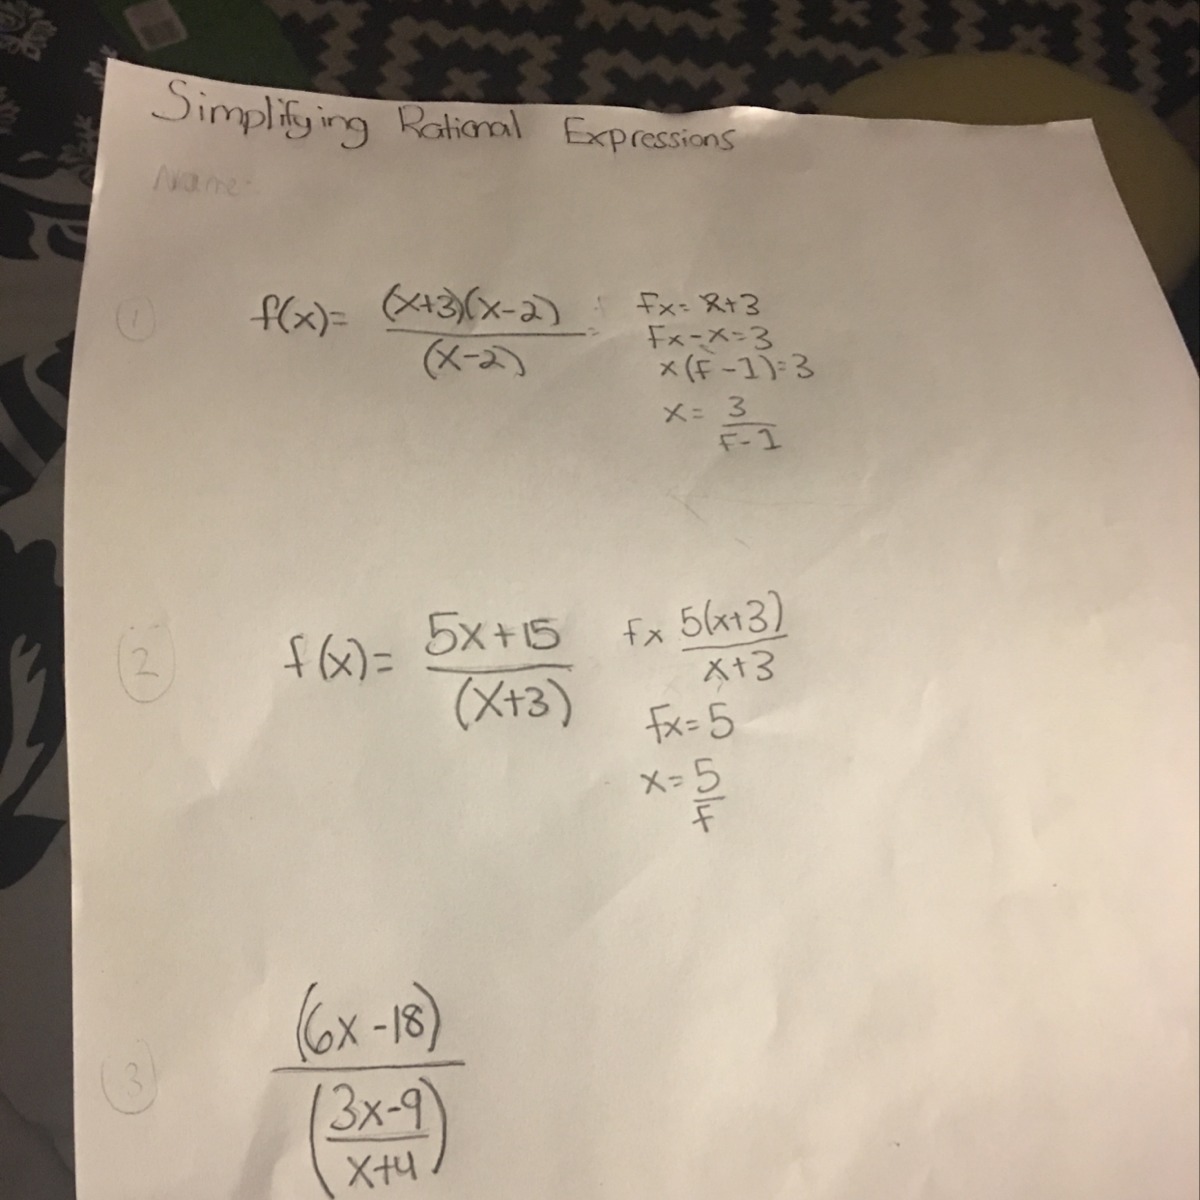 Simplifying Rational Expressions
Name:
1
f(x)= (x+3)(x-2)
(x-2)
fx= x+3
fx-x=3
x(f-1)=3
x= 3
f-1
2
f(x)= 5x+15
(x+3)
fx 5(x+3)
x+3
fx=5
x= 5
f
3
(6x-18)
(3x-9
x+4)